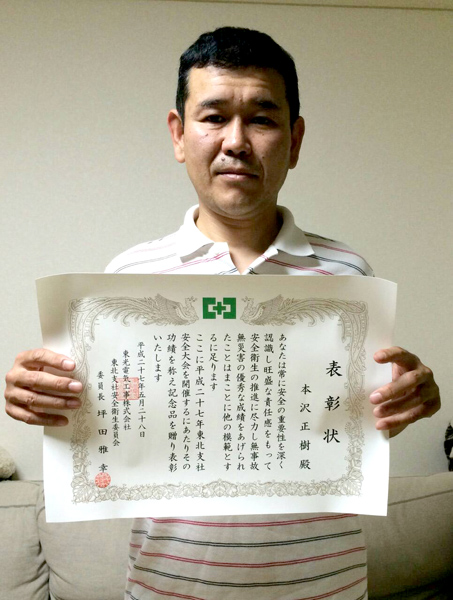 表彰状
本沢正樹殿
あなたは常に安全の重要性を深く
認識し旺盛な責任感をもって
安全衛生の推進に尽力し無事故
無災害の優秀な成績をあげられ
たことはまことに他の模範とす
るに足ります
ここに平成二十七年東北支社
安全大会を開催するにあたりその
功績を称え記念品を贈り表彰
いたします
平成二十七年五月二十八日
東光電気工事株式会社
東北支社安全衛生委員会
委員長 坪田雅幸